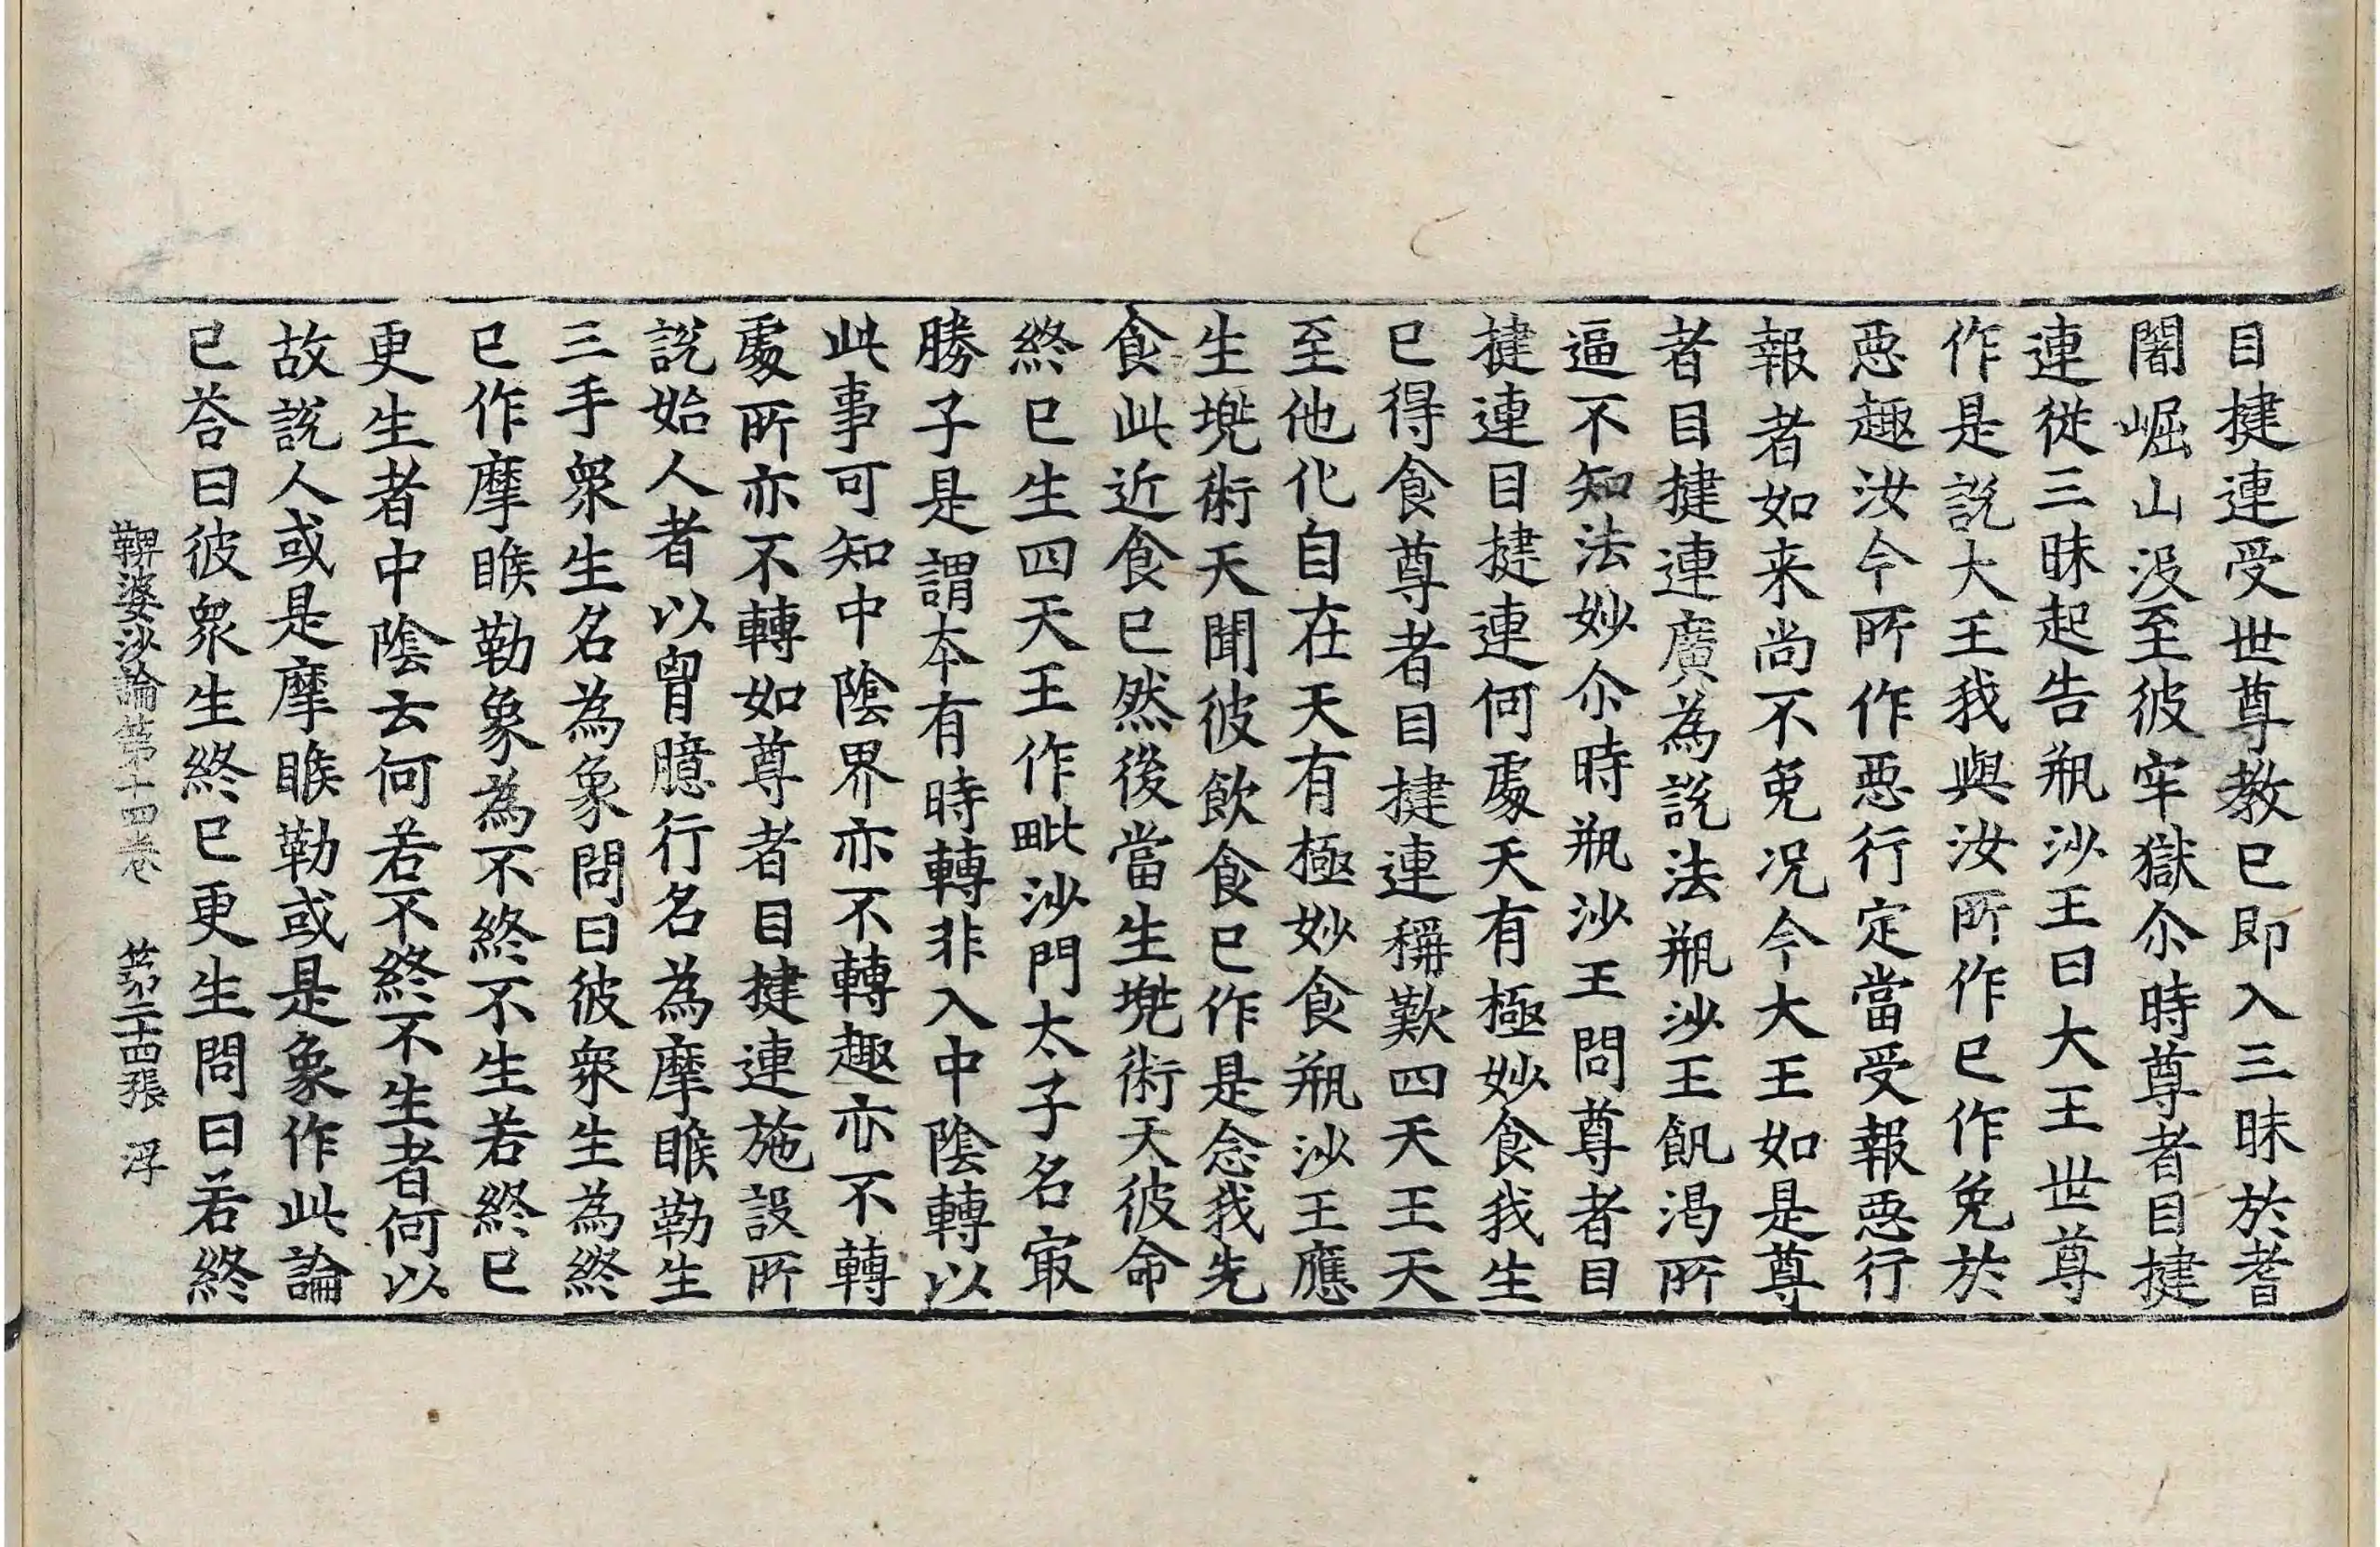 目揵連受世尊教已即入三昧於耆
闍崛山没至彼牢獄尒時尊者目揵
連從三昧起告瓶沙王曰大王世尊
作是說大王我與汝所作已作免於
惡趣汝今所作惡行定當受報惡行
報者如来尚不免况今大王如是尊
者目揵連廣為說法瓶沙王飢渴所
逼不知法妙尒時瓶沙王問尊者目
揵連目揵連何處天有極妙食我生
已得食尊者目揵連稱歎四天王天
至他化自在天有極妙食瓶沙王應
生兠術天聞彼飲食已作是念我先
食此近食已然後當生兠術天彼命
終已生四天王作毗沙門太子名冣
勝子是謂本有時轉非入中陰轉以
此事可知中陰界亦不轉趣亦不轉
處所亦不轉如尊者目揵連施設所
說始人者以胷臆行名為摩睺勒生
三手衆生名為象問曰彼衆生為終
已作摩睺勒象為不終不生若終已
更生者中陰去何若不終不生者何以
故說人或是摩睺勒或是象作此論
已荅曰彼衆生終已更生問曰若終
鞞婆沙論第十四卷　第二十四張　浮